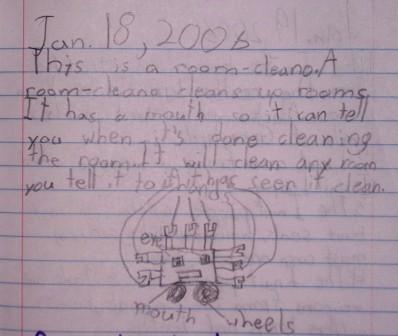 Jan. 18, 2006
This is a room-cleano. A
room-cleano cleans up rooms.
It has a mouth so it can tell
you when it's done cleaning
the room. It will clean any room
you tell it to if it has seen it clean.
hands
eye
mouth
wheels